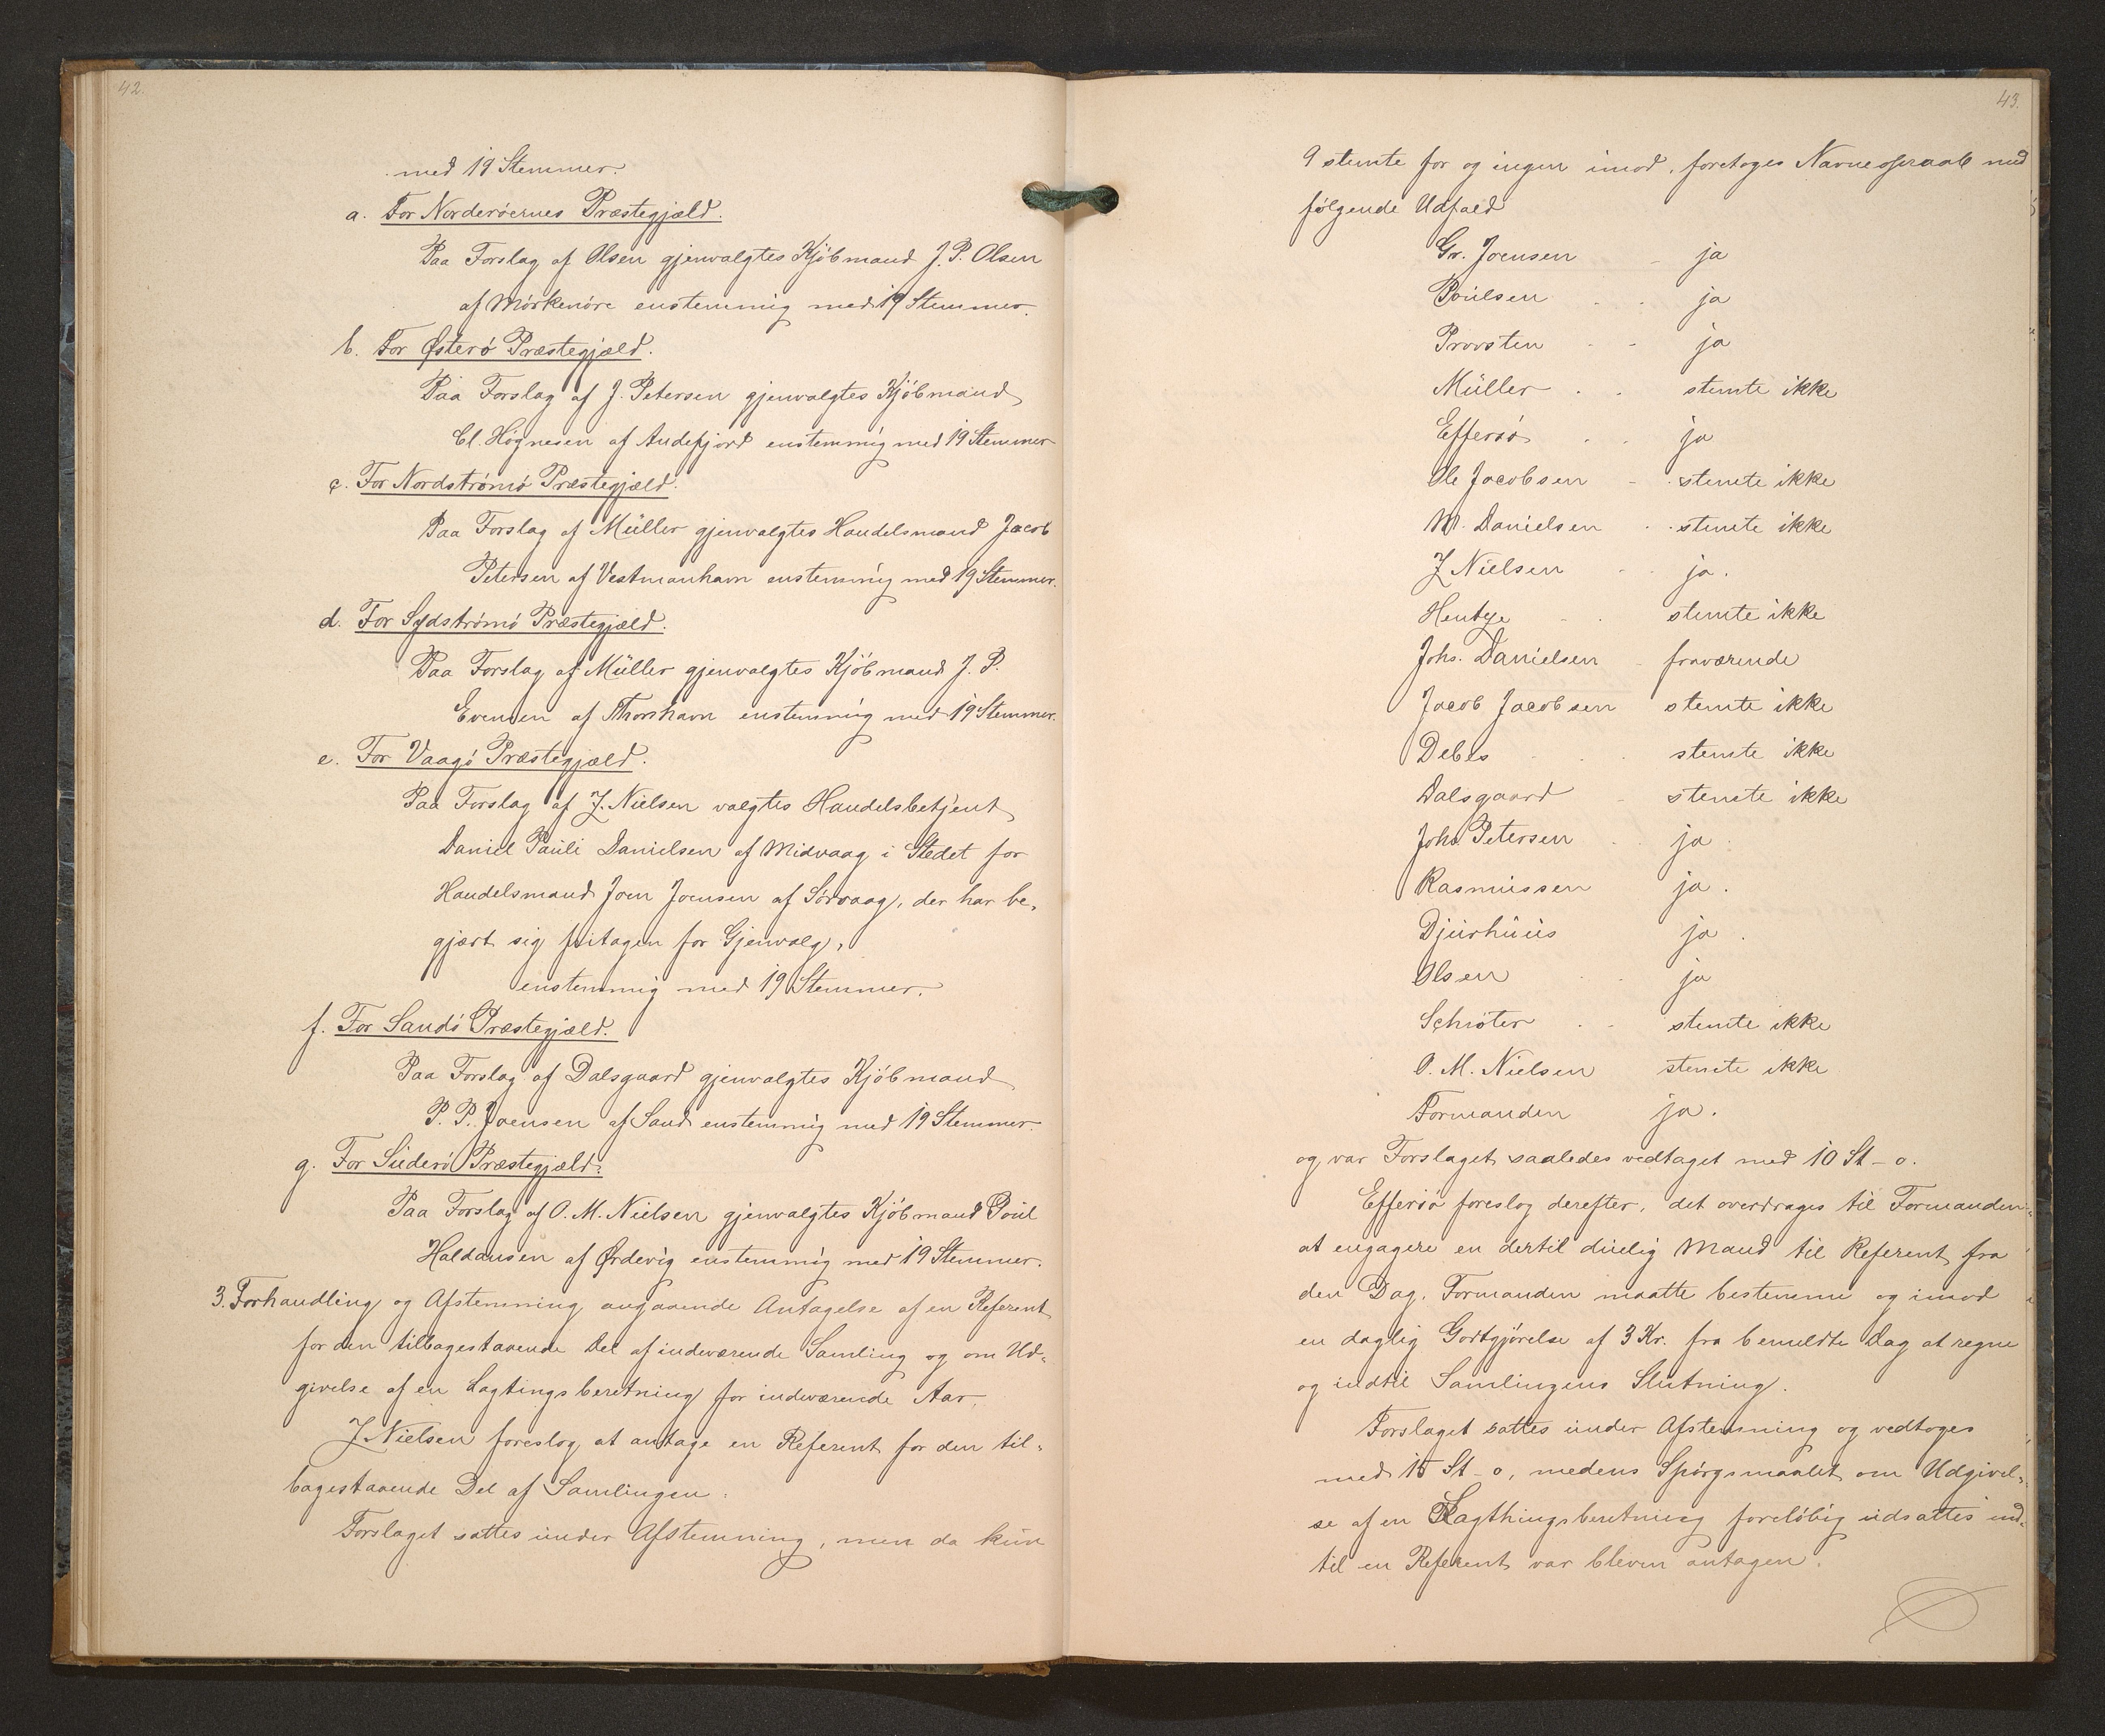 42.
med 19 Stemmer.
a. For Norderöernes Præstegjæld.
Paa Forslag af Olsen gjenvalgtes Kjöbmand J. P. Olsen
af Mörkenöre enstemmig med 19 Stemmer.
b. For Østerö Præstegjæld.
Paa Forslag af J. Petersen gjenvalgtes Kjöbmand
Cl. Högnesen af Andefjord enstemmig med 19 Stemmer
c. For Nordströmö Præstegjæld.
Paa Forslag af Müller gjenvalgtes Handelsmand Jacob
Petersen af Vestmanhavn enstemmig med 19 Stemmer.
d. For Sydströmö Præstegjæld.
Paa Forslag af Müller gjenvalgtes Kjöbmand J. P.
Evensen af Thorshavn enstemmig med 19 Stemmer.
e. For Vaagö Præstegjæld.
Paa Forslag af J. Nielsen valgtes Handelsbetjent
Daniel Pauli Danielsen af Midvaag i Stedet for
Handelsmand Joen Joensen af Sörvaag, der har be-
gjært sig fritagen for Gjenvalg,
enstemmig med 19 Stemmer.
f. For Sandö Præstegjæld.
Paa Forslag af Dalsgaard gjenvalgtes Kjöbmand
P. P. Joensen af Sand enstemmig med 19 Stemmer.
g. For Suderö Præstegjæld.
Paa Forslag af O. M. Nielsen gjenvalgtes Kjöbmand Poul
Haldansen af Ørdevig enstemmig med 19 Stemmer.
3. Forhandling og Afstemning angaaende Antagelse af en Referent
for den tilbagestaaende Del af indeværende Samling og om Ud-
givelse af en Lagtingsberetning for indeværende Aar.
J. Nielsen foreslog at antage en Referent for den til-
bagestaaende Del af Samlingen.
Forslaget sattes under Afstemning, men da kun
43.
9 stemte for og ingen imod, foretoges Navneopraab med
følgende Udfald
Gr. Joensen - ja
Poulsen - - ja
Provsten - - ja
Müller - - stemte ikke
Effersö - - ja
Ole Jacobsen - stemte ikke
M. Danielsen - stemte ikke
J Nielsen - - ja.
Hentze - - stemte ikke
Johs. Danielsen - fraværende
Jacob Jacobsen stemte ikke
Debes - - stemte ikke
Dalsgaard - stemte ikke
Johs Petersen - ja
Rasmussen ja.
Djurhuus ja.
Olsen - ja
Schröter - - stemte ikke
O. M. Nielsen stemte ikke
Formanden ja.
og var Forslaget saaledes vedtaget med 10 St - 0.
Effersö foreslog derefter, det overdrages til Formanden
at engagere en dertil duelig Mand til Referent fra
den Dag, Formanden maatte bestemme og imod
en daglig Godtgjörelse af 3 Kr. fra bemeldte Dag at regne
og indtil Samlingens Slutning.
Forslaget sattes under Afstemning og vedtoges
med 15 St - 0, medens Spörgsmaalet om Udgivel-
se af en Lagthingsberetning forelöbig udsattes ind-
til en Referent var bleven antagen.